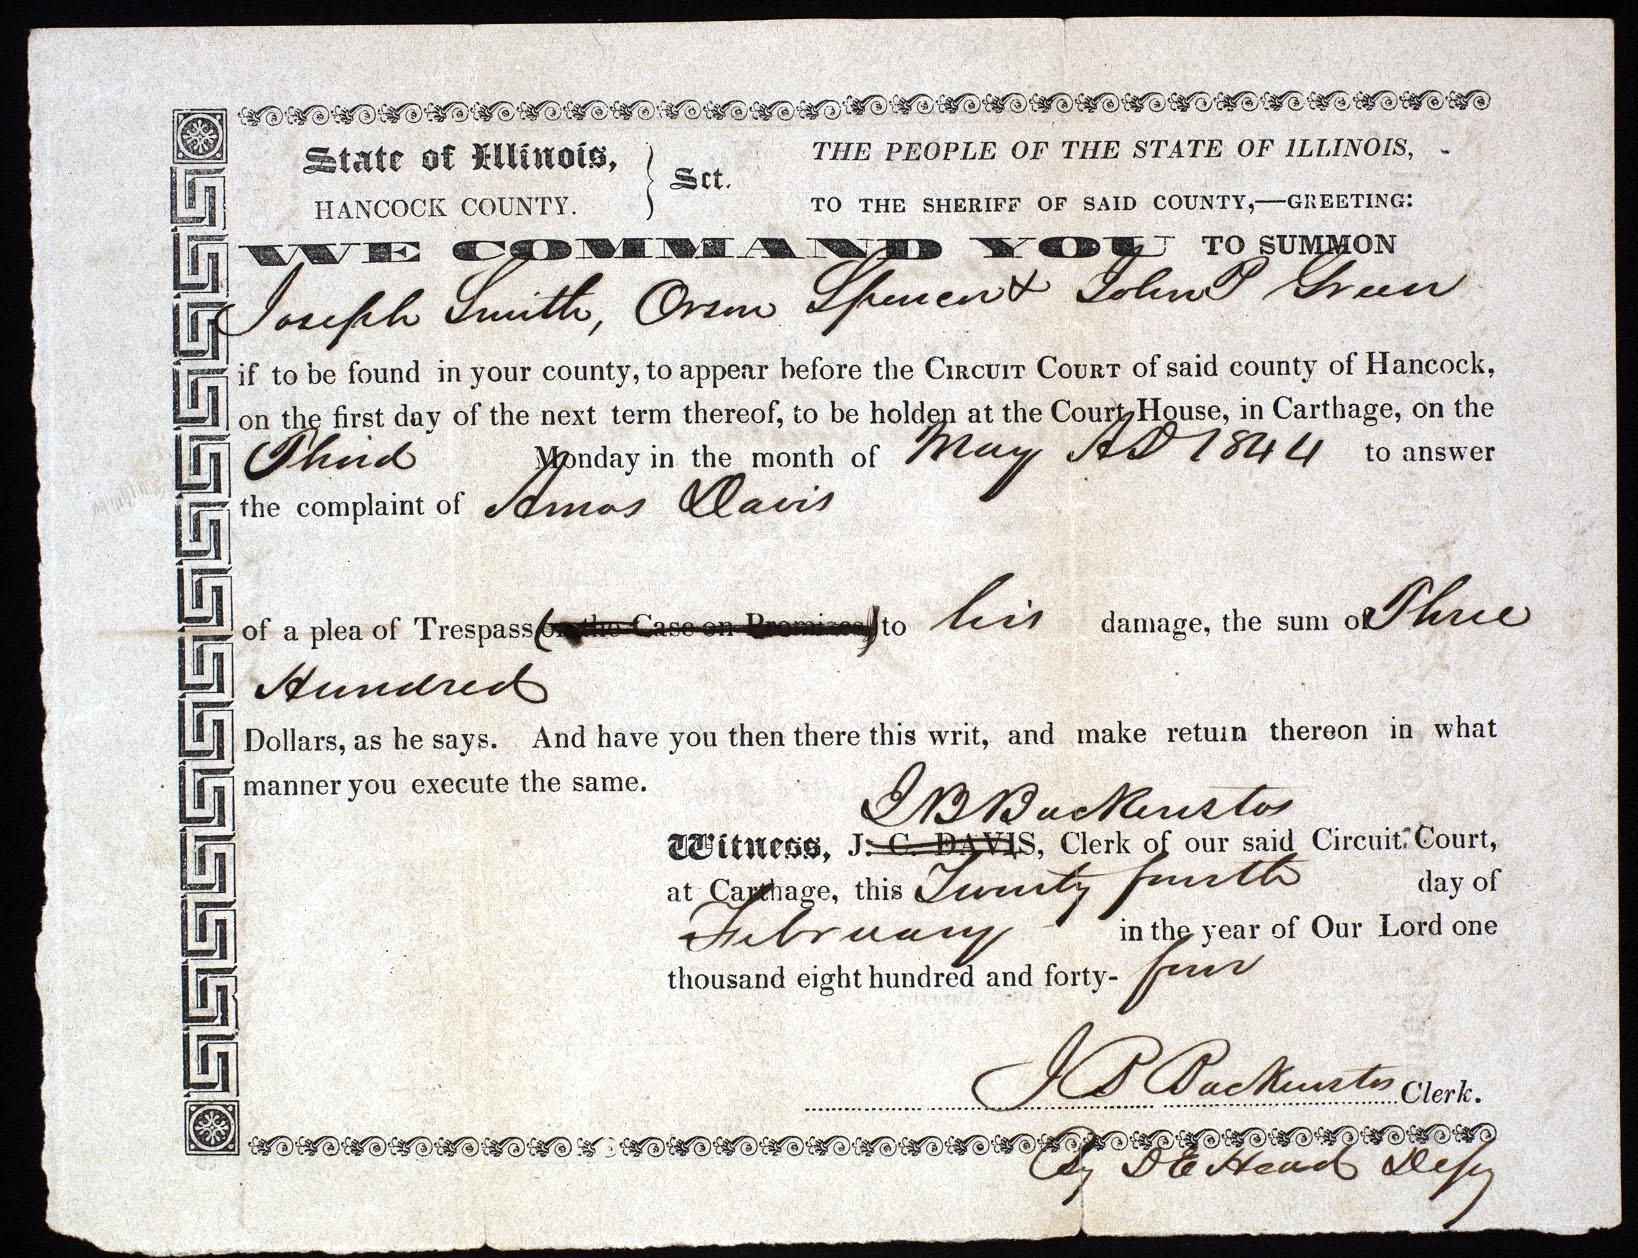 State of Illinois, } Sct. THE PEOPLE OF THE STATE OF ILLINOIS,
HANCOCK COUNTY. TO THE SHERIFF OF SAID COUNTY,—GREETING:
WE COMMAND YOU TO SUMMON
Joseph Smith, Orson Spencer & John P Green
if to be found in your county, to appear before the CIRCUIT COURT of said county of Hancock,
on the first day of the next term thereof, to be holden at the Court House, in Carthage, on the
Third Monday in the month of May AD 1844 to answer
the complaint of Amos Davis
of a plea of Trespass (on the Case on Promises,) to his damage, the sum of Three
Hundred
Dollars, as he says. And have you then there this writ, and make return thereon in what
manner you execute the same.
J B Backenstos
Witness, J. C. DAVIS, Clerk of our said Circuit Court,
at Carthage, this Twenty fourth day of
February in the year of Our Lord one
thousand eight hundred and forty- four
J B Backenstos Clerk.
By D E Head Depy